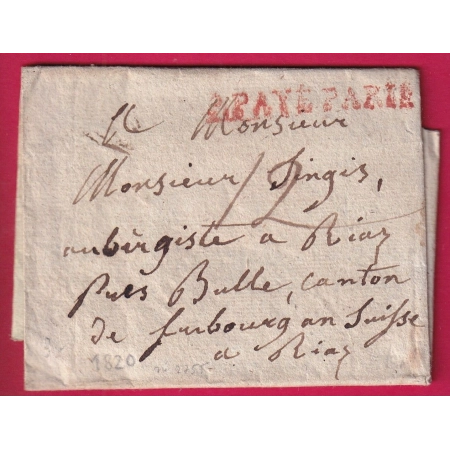 PAYÉ PARIS
A Monsieur
Monsieur Singis,
aubèrgiste a Riaz
pres Bulle, canton
de fribourg an Suisse
a Riaz
1820